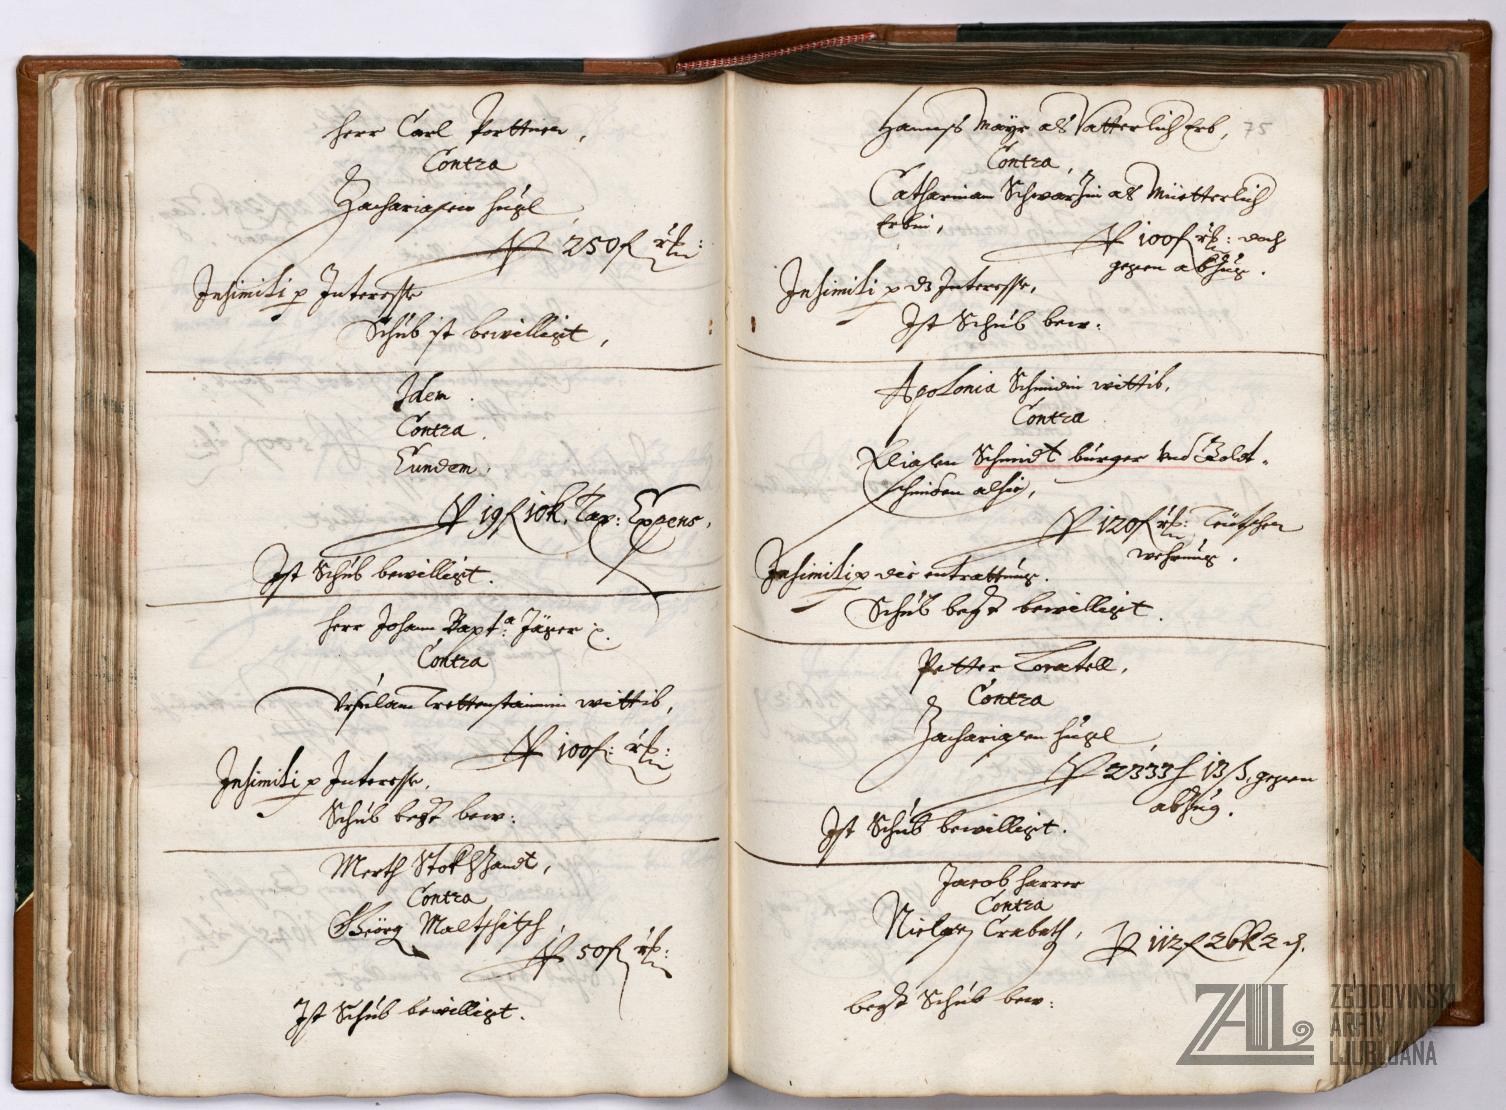 Herr Carl Porttner,
Contra
Zachariasen Hügl
250 f
Insimili p Interesse
Schub ist bewilligt,
Idem.
Contra.
Eundem.
p 19 f 10 k. Tax: Expens,
Ist Schub bewilligt.
Herr Johann Bapt:a Jäger
Contra
Ursulam Trettenstainin wittib,
100 f:
Insimili p Interesse,
Schub begt bew:
Merth Stokhzandt,
Contra
Georg Maltschitsch
50 f
Ist Schub bewilligt.
Hanns Mayr als Vatterlich Erb,
75
Contra,
Catharinam Schwarzin als Müetterlich
Erbin,
p 100 f doch
gegen abzug.
Insimili p ds Interesse,
Ist Schub bew:
Apolonia Schmidin wittib,
Contra
Eliasen Schmidt burger vnd Goldt-
schmiden alhie,
p 120 f Teutschen
wehrung.
Insimili p die entrattung.
Schub begt bewilligt.
Petter
Contra
Zachariasen Hügl
p 2333 f 13 ß, gegen
abzug.
Ist Schub bewilligt.
Jacob Harrer
Contra
Niclasen Crabath,
p 112 f 26 k 2 d.
begt Schub bew:
ZAL ZGODOVINSKI
ARHIV
LJUBLJANA